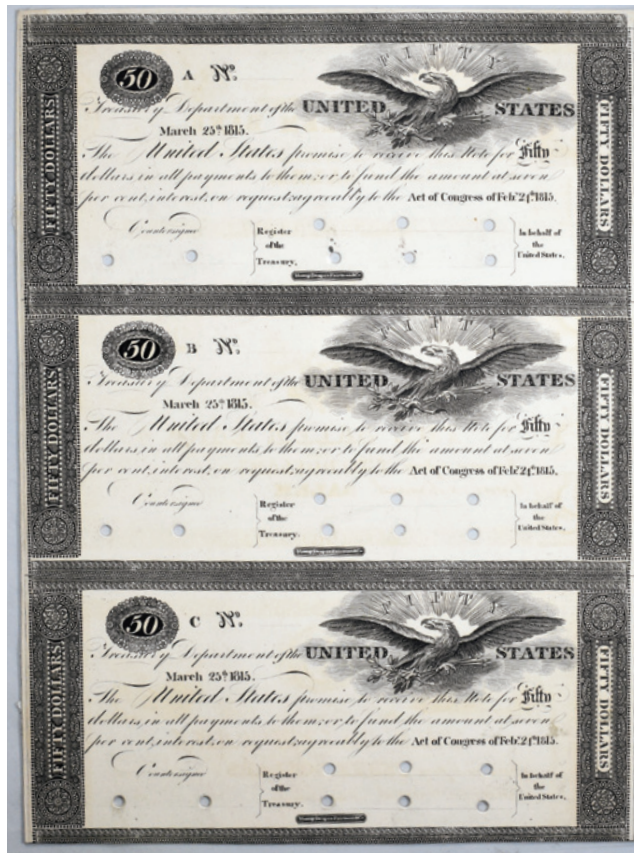 50 A No. FIFTY
Treasury Department of the UNITED STATES
March 25th 1815.
The United States promise to receive this Note for Fifty
dollars, in all payments to them; or to fund the amount at seven
per cent, interest, on request, agreeably to the Act of Congress of Feby. 24th 1815.
Countersigne
Register
of the
Treasury.
In behalf of
the
United States.
FIFTY DOLLARS
FIFTY DOLLARS
50 B No. FIFTY
Treasury Department of the UNITED STATES
March 25th 1815.
The United States promise to receive this Note for Fifty
dollars, in all payments to them; or to fund the amount at seven
per cent, interest, on request, agreeably to the Act of Congress of Feby. 24th 1815.
Countersigne
Register
of the
Treasury.
In behalf of
the
United States.
FIFTY DOLLARS
FIFTY DOLLARS
50 C No. FIFTY
Treasury Department of the UNITED STATES
March 25th 1815.
The United States promise to receive this Note for Fifty
dollars, in all payments to them; or to fund the amount at seven
per cent, interest, on request, agreeably to the Act of Congress of Feby. 24th 1815.
Countersigne
Register
of the
Treasury.
In behalf of
the
United States.
FIFTY DOLLARS
FIFTY DOLLARS